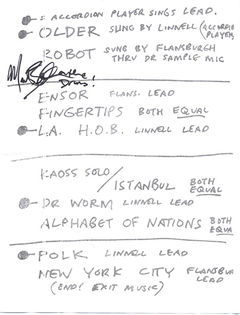 = ACCORDION PLAYER SINGS LEAD.
OLDER SUNG BY LINNELL (ACCORDION PLAYER)
ROBOT SUNG BY FLANSBURGH
THRU DR SAMPLE MIC
ENSOR FLANS. LEAD
FINGERTIPS BOTH EQUAL
L.A. H.O.B. LINNELL LEAD
KAOSS SOLO /
ISTANBUL BOTH EQUAL
DR WORM LINNELL LEAD
ALPHABET OF NATIONS BOTH EQUA
POLK LINNELL LEAD
NEW YORK CITY FLANSBUR LEAD
(END! EXIT MUSIC)